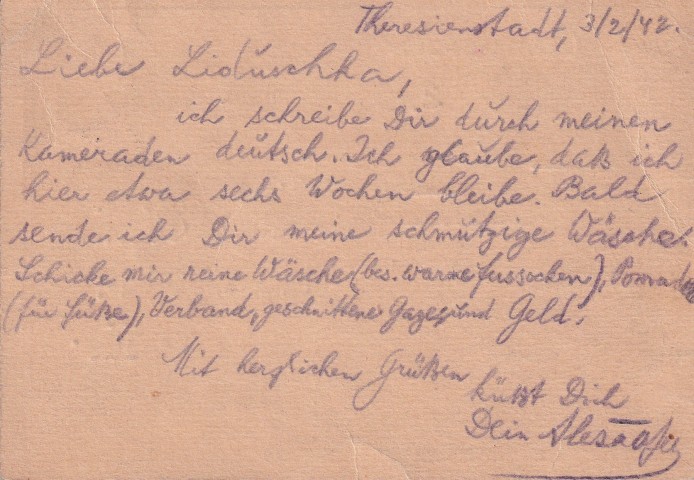 Theresienstadt, 3/2/42.
Liebe Liduschka,
ich schreibe Dir durch meinen
Kameraden deutsch. Ich glaube, daß ich
hier etwa sechs Wochen bleibe. Bald
sende ich Dir meine schmutzige Wäsche.
Schicke mir reine Wäsche (bes. warme Fussocken), Pomade
(für Füße), Verband, geschnittene Gaze, und Geld.
Mit herzlichen Grüßen
küßt Dich
Dein